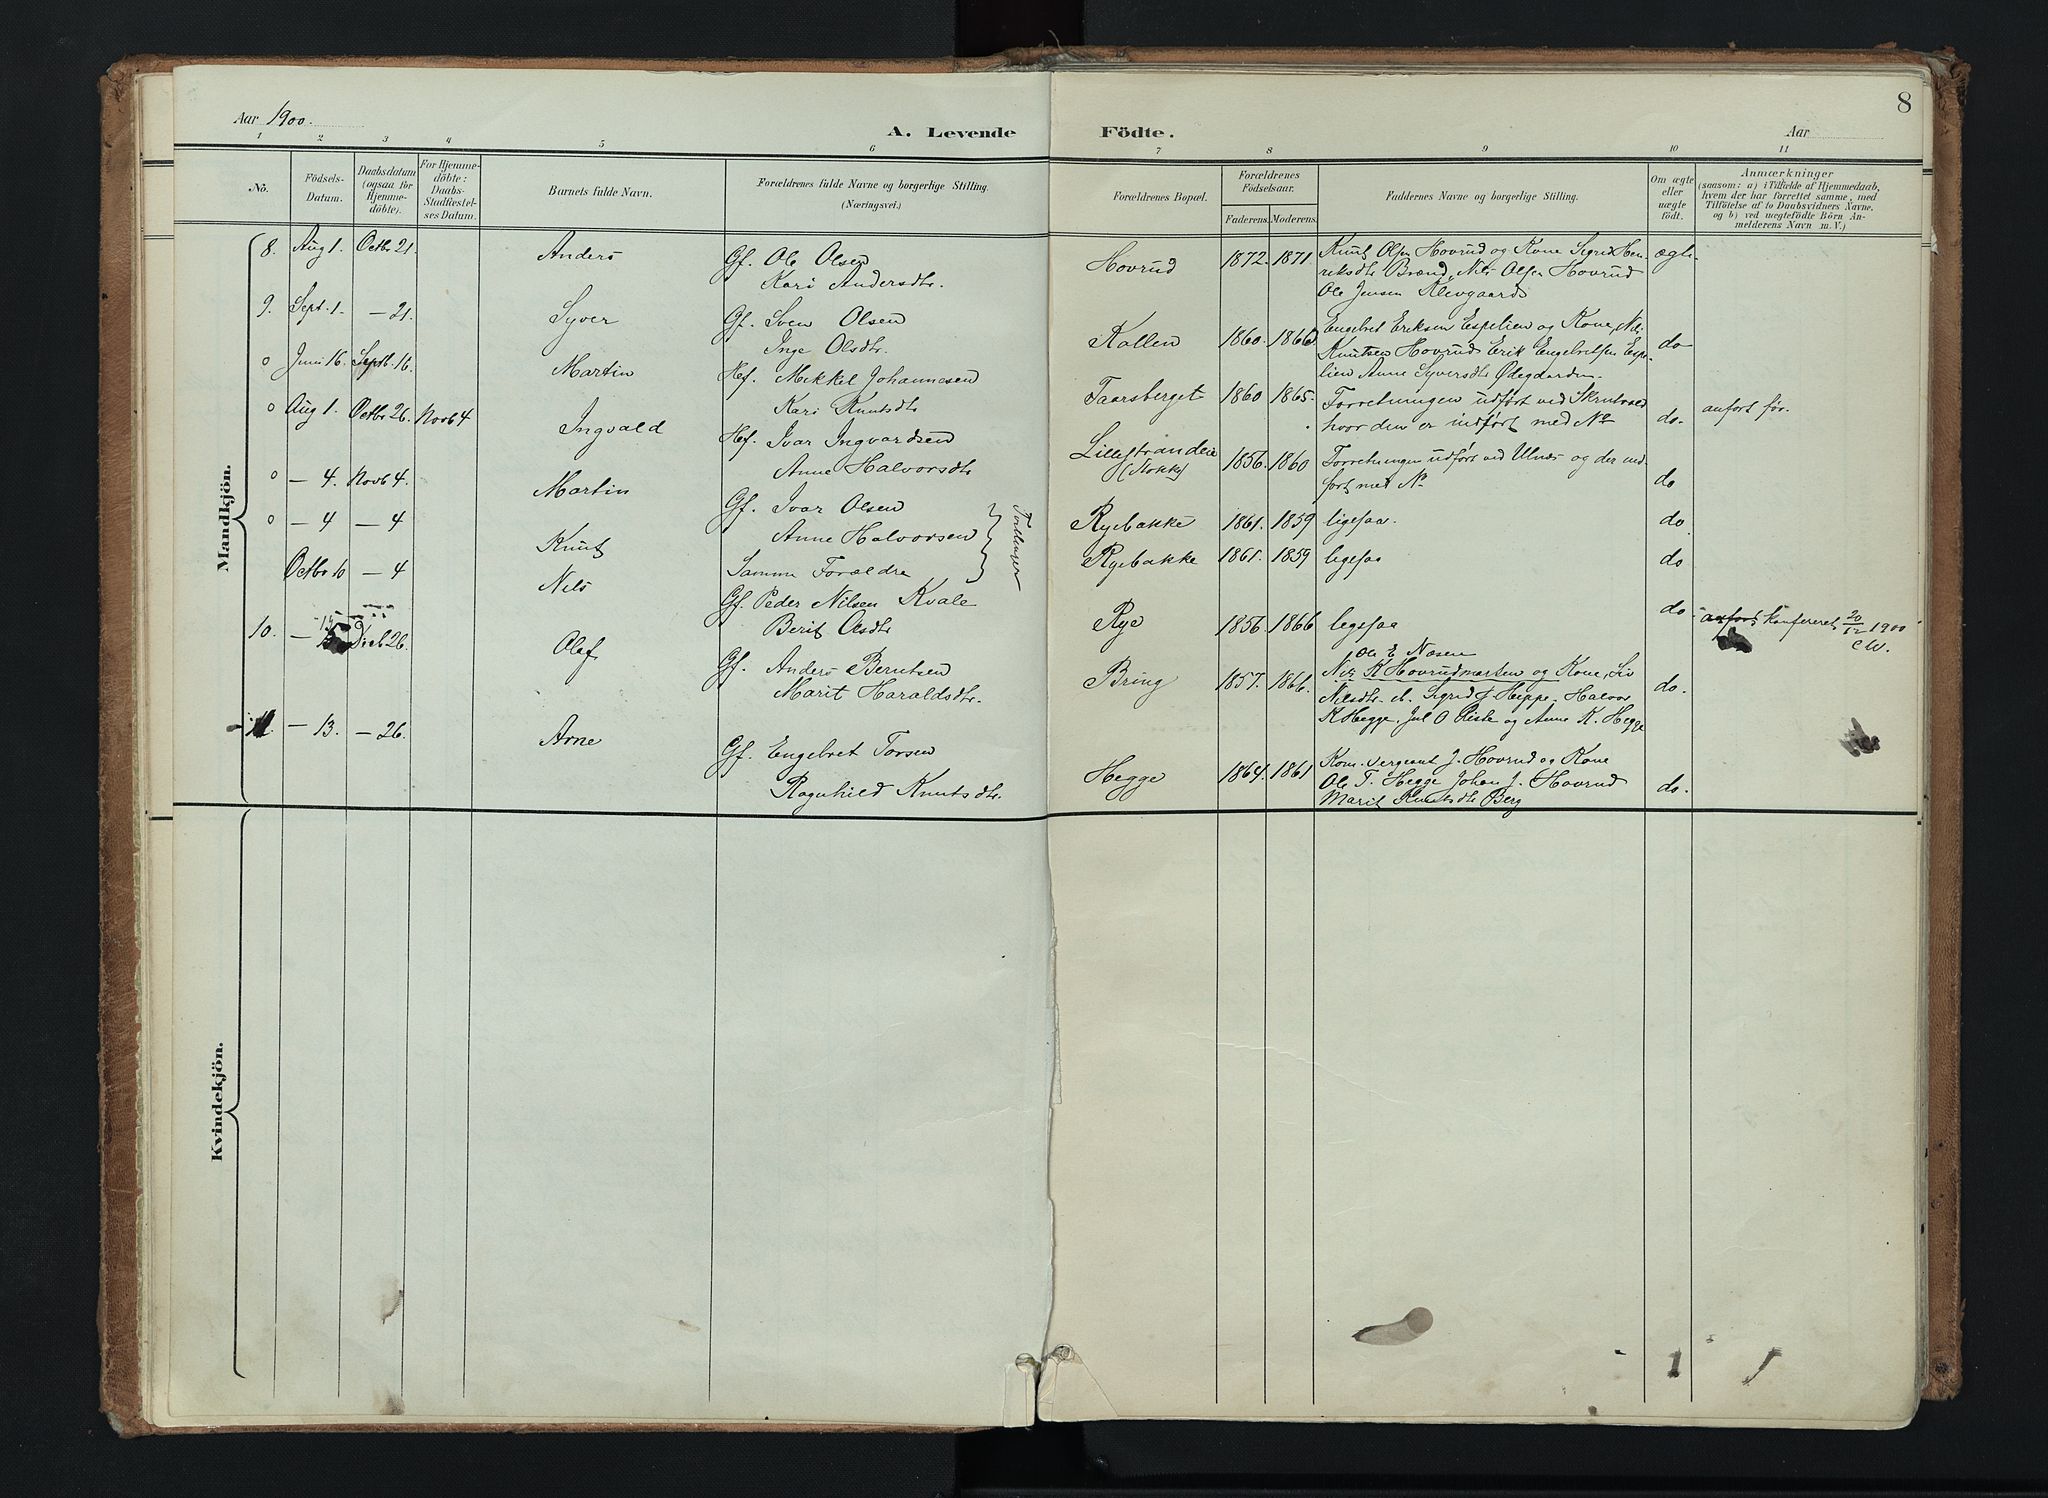 Aar 1900.
A. Levende
Födte.
Aar
8
1 2 3 4 5 6 7 8 9 10 11
No.
Födsels-
Datum.
Daabsdatum
(ogsaa for
Hjemme-
döbte).
For Hjemme-
döbte:
Daabs-
Stadfæstel-
ses Datum.
Barnets fulde Navn.
Forældrenes fulde Navne og borgerlige Stilling.
(Næringsvei.)
Forældrenes Bopæl.
Forældrenes
Födselsaar.
Faderens. Moderens.
Faddernes Navne og borgerlige Stilling.
Om ægte
eller
uægte
födt.
Anmærkninger
(saasom: a) i Tilfælde af Hjemmedaab,
hvem der har forrettet samme, med
Tilföielse af to Daabsvidners Navne.
og b) ved uegtefödte Börn An-
melderens Navn m.V.)
Mandkjön.
8. Aug 1. Octbr 21. Anders
Gf. Ole Olsen
Kari Andersdtr.
Hovrud 1872. 1871
Knut Olsen Hovrud og Kone Sigrid Hen-
riksdtr Brænd, Nils Olsen Hovrud
Ole Jensen Klevgaard
ægte
9. Sept. 1. — 21. Syver
Gf. Sven Olsen
Inge Olsdtr.
Kollen 1860. 1866
Engebret Eriksen Espelien og Kone, Nils
Knutsen Hovrud Erik Engebretsen Espe-
lien Anne Syversdtr Ødegaarden
do
0 Juni 16. Septb. 16. Martin
Hef. Mikkel Johannesen
Kari Knutsdtr
Taarsberget 1860 1865.
Forretningen udført ved Skrutvold
hvor den er indført med No
do. anført før.
0 Aug 1. Octbr 26. Novb 4 Ingvald
Hef. Ivar Ingvardsen
Anne Halvorsdtr
Lillestrandeie
(Stokke)
1856. 1860
Forretningen udført ved Ulnæs og der ind-
ført med No
do
0 — 4. Novb 4. Martin
Gf. Ivar Olsen
Anne Halvorsen
Tvillinger
Ryebakke 1861. 1859 ligesaa. do
0 — 4 — 4 Knut
Samme Forældre
Ryebakke 1861. 1859 ligesaa do
Octbr 10 — 4 Nils
Gf. Peder Nilsen Kvale
Berit Olsdtr
Rye 1856. 1866 ligesaa do
anført konfereret 20/12 1900
CW.
10. — 15 Dcb 26. Olaf
Gf. Anders Berntsen
Marit Haraldsdtr.
Bring 1857. 1866.
Ole E Næsen
Nils K Hovrudmarten og Kone, Siv
Nilsdtr. Sigrid J Heppe, Halvor
K Hegge, Jul O Riste og Anne K. Hegge
do.
11. — 13. — 26. Arne
Gf. Engebret Torsen
Ragnhild Knutsdtr.
Hegge 1864. 1861
Kom. sergeant J. Hovrud og Kone
Ole T. Hegge Johan J. Hovrud
Marit Knutsdtr Berg
do.
Kvindekjön.